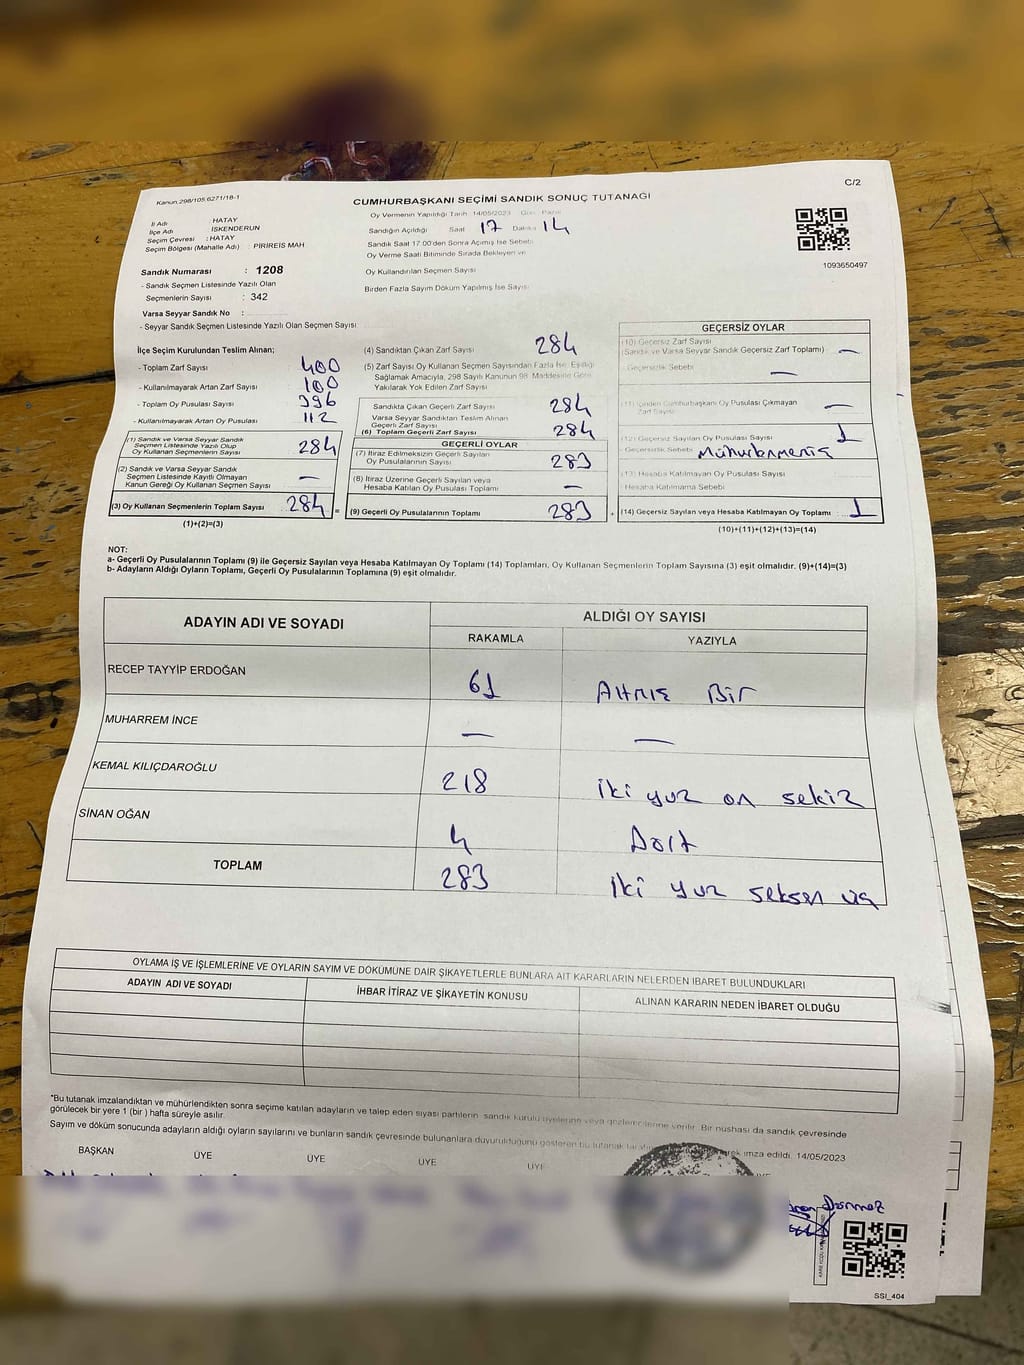 Kanun.298/105;6271/18-1
C/2
CUMHURBAŞKANI SEÇİMİ SANDIK SONUÇ TUTANAĞI
İl Adı : HATAY
İlçe Adı : İSKENDERUN
Seçim Çevresi : HATAY
Seçim Bölgesi (Mahalle Adı) : PİRİREİS MAH
Sandık Numarası : 1208
- Sandık Seçmen Listesinde Yazılı Olan
Seçmenlerin Sayısı : 342
Varsa Seyyar Sandık No :
- Seyyar Sandık Seçmen Listesinde Yazılı Olan Seçmen Sayısı
Oy Vermenin Yapıldığı Tarih 14/05/2023 Gün Pazar
Sandığın Açıldığı Saat 17 Dakika 14
Sandık Saat 17.00'den Sonra Açımış İse Sebebi
Oy Verme Saati Bitiminde Sırada Bekleyen ve
Oy Kullandırılan Seçmen Sayısı
Birden Fazla Sayım Döküm Yapılmış İse Sayısı
1093650497
İlçe Seçim Kurulundan Teslim Alınan;
- Toplam Zarf Sayısı 400
- Kullanılmayarak Artan Zarf Sayısı 100
- Toplam Oy Pusulası Sayısı 396
- Kullanılmayarak Artan Oy Pusulası 112
(1) Sandık ve Varsa Seyyar Sandık
Seçmen Listesinde Yazılı Olup
Oy Kullanan Seçmenlerin Sayısı 284
(2) Sandık ve Varsa Seyyar Sandık
Seçmen Listesinde Kayıtlı Olmayan
Kanun Gereği Oy Kullanan Seçmen Sayısı —
(3) Oy Kullanan Seçmenlerin Toplam Sayısı 284 =
(1)+(2)=(3)
(4) Sandıktan Çıkan Zarf Sayısı 284
(5) Zarf Sayısı Oy Kullanan Seçmen Sayısından Fazla İse, Eşitliği
Sağlamak Amacıyla, 298 Sayılı Kanunun 98. Maddesine Göre
Yakılarak Yok Edilen Zarf Sayısı
Sandıkta Çıkan Geçerli Zarf Sayısı 284
Varsa Seyyar Sandıktan Teslim Alınan
Geçerli Zarf Sayısı
(6) Toplam Geçerli Zarf Sayısı 284
GEÇERLİ OYLAR
(7) İtiraz Edilmeksizin Geçerli Sayılan
Oy Pusulalarının Sayısı 283
(8) İtiraz Üzerine Geçerli Sayılan veya
Hesaba Katılan Oy Pusulası Toplamı —
(9) Geçerli Oy Pusulalarının Toplamı 283 +
GEÇERSİZ OYLAR
(10) Geçersiz Zarf Sayısı
(Sandık ve Varsa Seyyar Sandık Geçersiz Zarf Toplamı) —
- Geçersizlik Sebebi —
(11) İçinden Cumhurbaşkanı Oy Pusulası Çıkmayan
Zarf Sayısı —
(12) Geçersiz Sayılan Oy Pusulası Sayısı 1
- Geçersizlik Sebebi Mühürlenmemiş
(13) Hesaba Katılmayan Oy Pusulası Sayısı
- Hesaba Katılmama Sebebi
(14) Geçersiz Sayılan veya Hesaba Katılmayan Oy Toplamı 1
(10)+(11)+(12)+(13)=(14)
NOT:
a- Geçerli Oy Pusulalarının Toplamı (9) ile Geçersiz Sayılan veya Hesaba Katılmayan Oy Toplamı (14) Toplamları, Oy Kullanan Seçmenlerin Toplam Sayısına (3) eşit olmalıdır. (9)+(14)=(3)
b- Adayların Aldığı Oyların Toplamı, Geçerli Oy Pusulalarının Toplamına (9) eşit olmalıdır.
ADAYIN ADI VE SOYADI ALDIĞI OY SAYISI
RAKAMLA YAZIYLA
RECEP TAYYİP ERDOĞAN 61 Altmış Bir
MUHARREM İNCE — —
KEMAL KILIÇDAROĞLU 218 iki yuz on sekiz
SİNAN OĞAN 4 Dört
TOPLAM 283 iki yuz seksen üç
OYLAMA İŞ VE İŞLEMLERİNE VE OYLARIN SAYIM VE DÖKÜMÜNE DAİR ŞİKAYETLERLE BUNLARA AİT KARARLARIN NELERDEN IBARET BULUNDUKLARI
ADAYIN ADI VE SOYADI İHBAR İTİRAZ VE ŞİKAYETİN KONUSU ALINAN KARARIN NEDEN İBARET OLDUĞU
"Bu tutanak imzalandıktan ve mühürlendikten sonra seçime katılan adayların ve talep eden siyasi partilerin sandık kurulu üyelerine veya gözlemcilerine verilir. Bir nüshası da sandık çevresinde
görülecek bir yere 1 (bir ) hafta süreyle asılır.
Sayım ve döküm sonucunda adayların aldığı oyların sayılarını ve bunların sandık çevresinde bulunanlara duyurulduğunu gösteren bu tutanak imza edildi. 14/05/2023
BAŞKAN ÜYE ÜYE ÜYE ÜYE
Dönmez
SSI_404